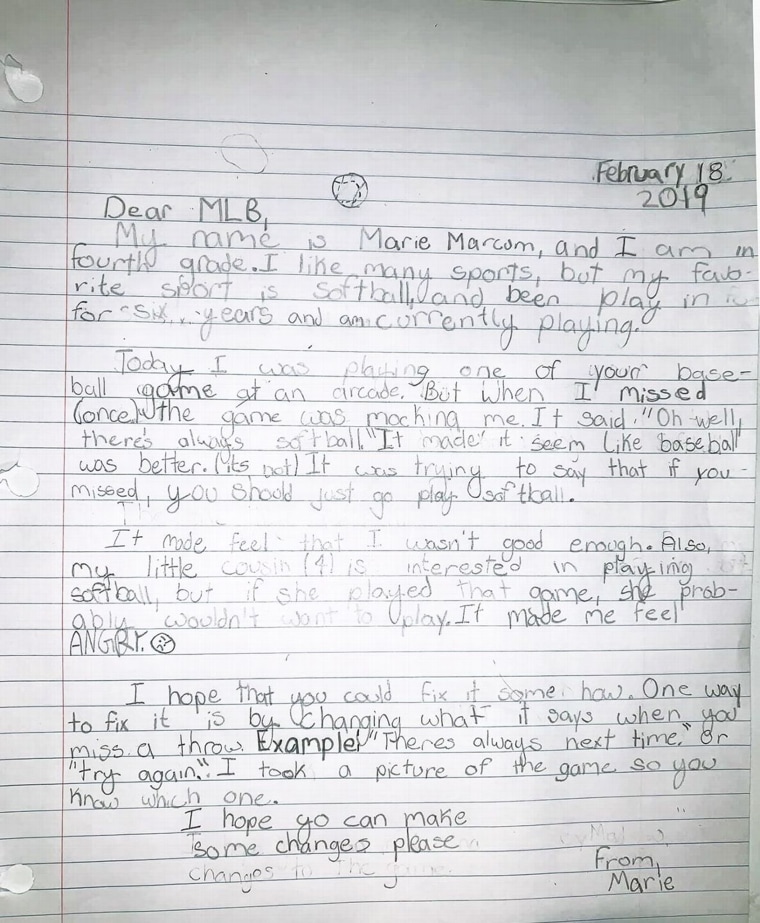 February 18
2019
Dear MLB,
My name is Marie Marcum, and I am in
fourth grade. I like many sports, but my favo-
rite sport is softball, and been play in
for six years and am currently playing.
Today I was playing one of your base-
ball game at an arcade. But when I missed
(once) the game was moching me. It said "Oh well,
there's always softball." It made it seem like baseball
was better. (its not) It was trying to say that if you
missed, you should just go play softball.
It made feel that I wasn't good enough. Also,
my little cousin (4) is interested in playing
softball, but if she played that game, she prob-
ably wouldn't want to play. It made me feel
ANGRY.
I hope that you could fix it some how. One way
to fix it is by changing what it says when you
miss a throw. Example! "Theres always next time." or
"try again". I took a picture of the game so you
know which one.
I hope yo can make
some changes please
changes to the game.
From,
Marie